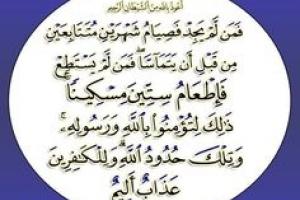 أعوذ بالله من الشيطان الرجيم
فَمَن لَّمْ يَجِدْ فَصِيَامُ شَهْرَيْنِ مُتَتَابِعَيْنِ
مِن قَبْلِ أَن يَتَمَآسَّا ۖ فَمَن لَّمْ يَسْتَطِعْ
فَإِطْعَامُ سِتِّينَ مِسْكِينًا ۚ
ذَٰلِكَ لِتُؤْمِنُوا۟ بِٱللَّهِ وَرَسُولِهِۦ ۚ
وَتِلْكَ حُدُودُ ٱللَّهِ ۗ وَلِلْكَٰفِرِينَ
عَذَابٌ أَلِيمٌ